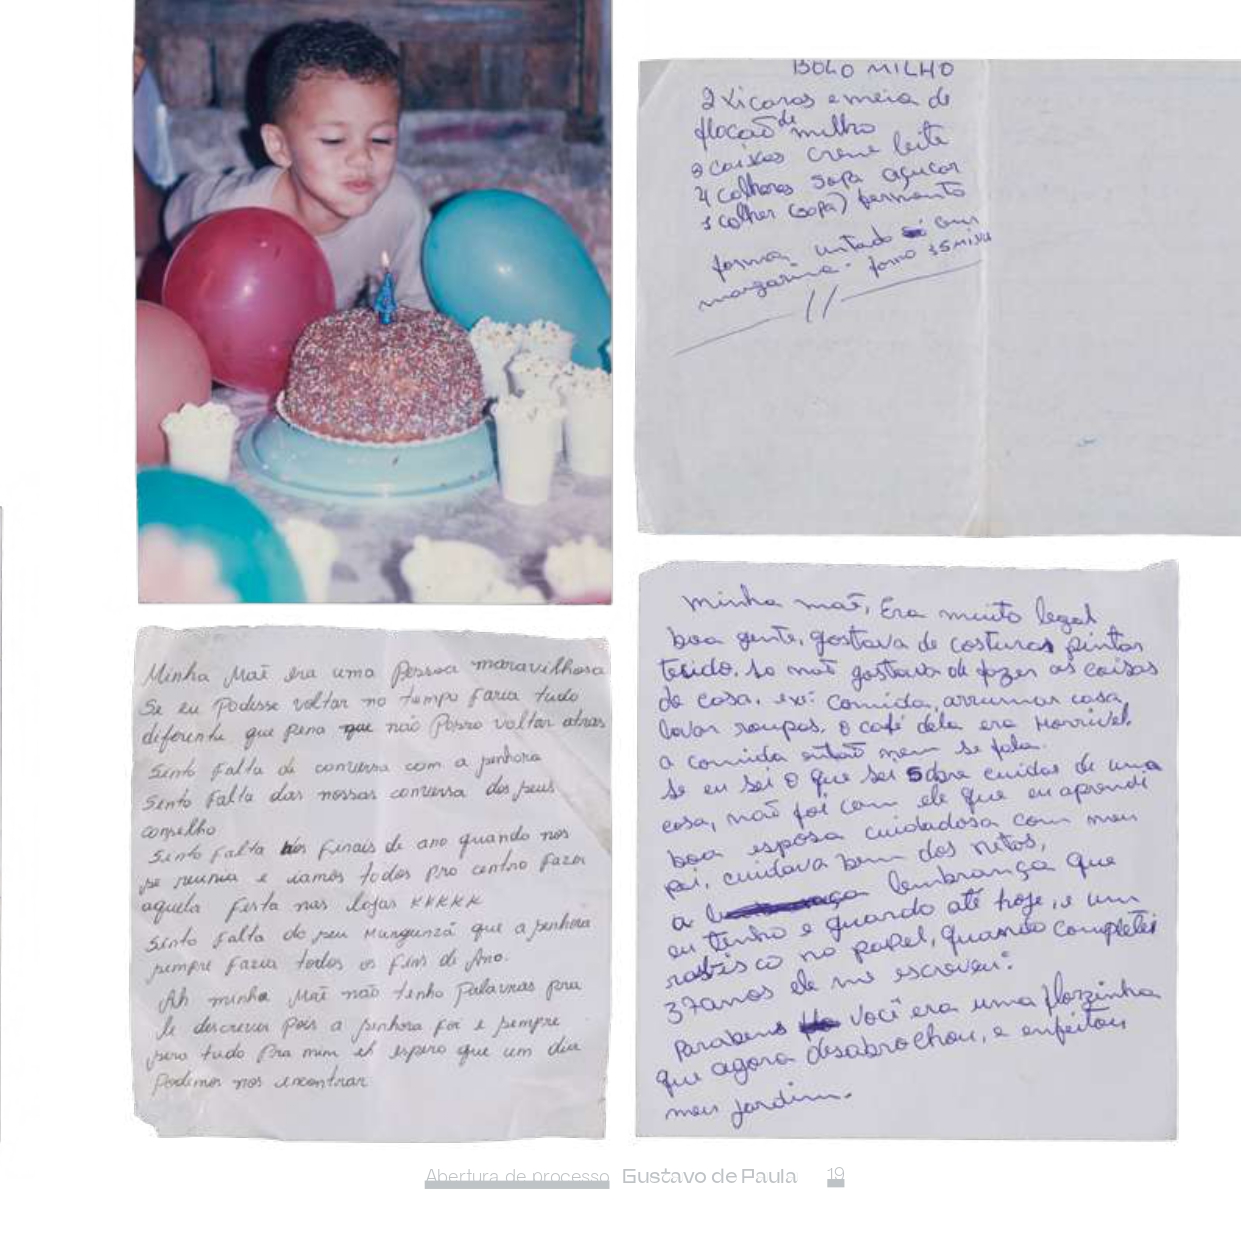 BOLO MILHO
2 xicaras e meia de
flocão de milho
2 caixas creme leite
4 colheres sopa açucar
1 colher (sopa) fermento
forma untado com
margarina - forno 35 Min
Minha Maẽ era uma Pessoa maravilhosa
Se eu Podesse voltar no tempo faria tudo
diferente que pena que não Posso voltar atras
Sinto falta de conversa com a senhora
Sinto falta das nossas conversa dos seus
conselho
Sinto falta dos finais de ano quando nos
se reunia e iamos todos pro centro fazer
aquela festa nas lojas KKKKK
Sinto falta do seu Mungunzá que a senhora
sempre fazia todos os fins de Ano.
Ah minha Maẽ não tenho Palavras pra
le descrever pois a senhora foi e sempre
sera tudo Pra mim espero que um dia
Podemos nos encontrar
Minha maẽ, Era muito legal
boa gente, gostava de costuras pintar
tecido. So não gostava de fazer as coisas
de casa. ex: comida, arrumar casa
lavar roupas. o café dela era Horrivel
a comida então nem se fala.
Se eu sei o que sei sobre cuidar de uma
casa, não foi com ela que eu aprendi
boa esposa cuidadosa com meu
pai, cuidava bem dos netos,
a lembrança que
eu tenho e guardo até hoje, e um
rabisco no papel, quando completei
37 anos ela me escreveu:
Parabens você era uma florzinha
que agora desabrochou, e enfeitou
meu jardim.
Abertura de processo Gustavo de Paula 19